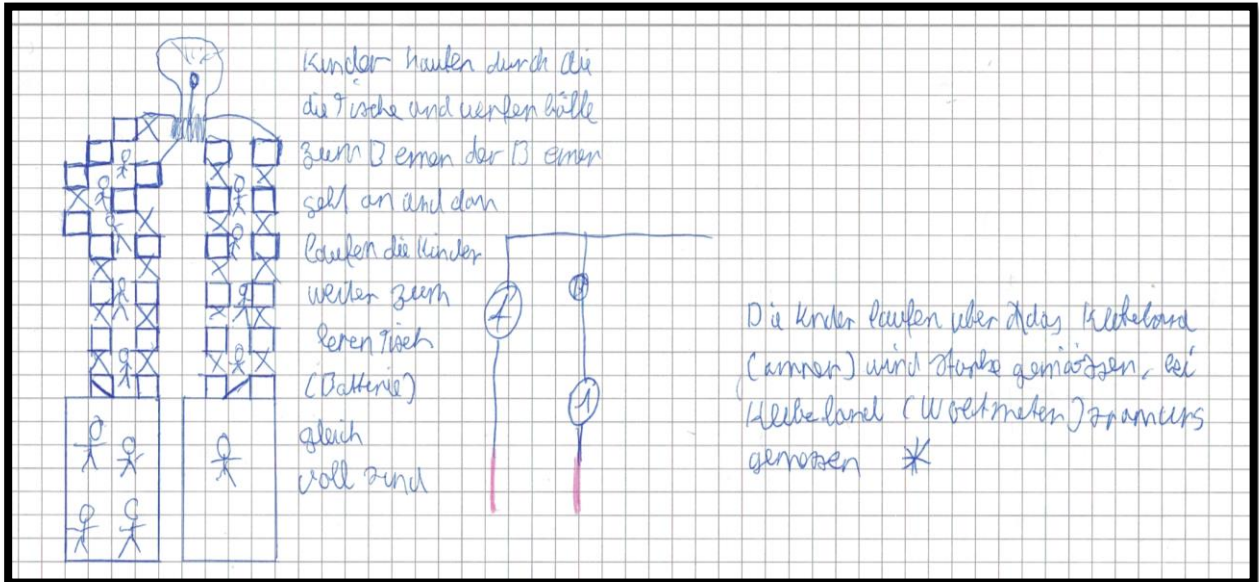 Kinder laufen durch die
die Tische und werfen bälle
zum B einen der B einer
geht an und dan
laufen die Kinder
weiter zum
leren Tisch
(Batterie)
gleich
voll sind
Die Kinder laufen uber das Klebeband
(amper) wird starke gemässen, bei
Klebeband (Woltmeter)
gemessen *